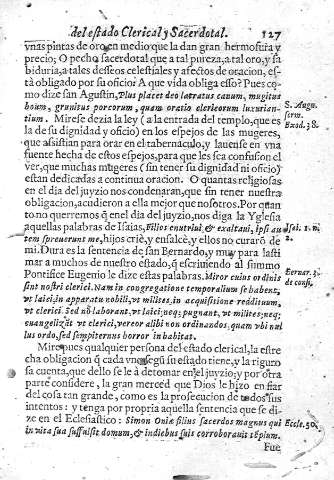 del estado Clerical, y Sacerdotal. 127
vnas pintas de oro en medio que la dan gran hermosura y
precio; O pecho sacerdotal que a tal pureza, a tal oro, y sa
biduria, a tales desseos celestiales y afectos de oracion, es-
tà obligado por su oficio! A que vida obliga esso? Pues co-
mo dize san Agustin, Plus placet deo latratus canum, mugitus
boum, grunitus porcorum, quam oratio clericorum luxurian-
tium. Mirese dezia la ley (a la entrada del templo, que es
la de su dignidad y oficio) en los espejos de las mugeres,
que assistian para orar en el tabernaculo, y lauense en vna
fuente hecha de estos espejos, para que les sea confusion el
ver, que muchas mugeres (sin tener su dignidad ni oficio)
estan dedicadas a continua oracion. O quantas religiosas
en el dia del juyzio nos condenaran, que sin tener nuestra
obligacion, acudieron a ella mejor que nosotros. Por quan
to no querremos q̃ en el dia del juyzio, nos diga la Yglesia
aquellas palabras de Isaias, Filios enutriui, & exaltaui, ipsi au
tem spreuerunt me, hijos criè, y ensalcè, y ellos no curarō de
mi. Otra es la sentencia de san Bernardo, y muy para lasti
mar a muchos de nuestro estado, q̃ escriuiendo al summo
Pontifice Eugenio le dize estas palabras. Miror cuius ordinis
sint nostri clerici. Nam in congregatione temporalium se habent,
vt laici, in apparatu nobili, vt milites, in acquisitione reddituum,
vt clerici. Sed nō laborant, vt laici; neq; pugnant, vt milites; neq;
euangelizāt vt clerici, vereor alibi non ordinandos, quam vbi nul
lus ordo, sed sempiternus horror inhabitat.
Mire pues qualquier persona del estado clerical, la estre
cha obligacion q̃ cada vno segū su estado tiene, y la riguro
sa cuenta, que dello se le à detomar en el juyzio; y por otra
parte considere, la gran merced que Dios le hizo en fiar
del cosa tan grande, como es la prosecucion de todos sus
intentos: y tenga por propria aquella sentencia que se di-
ze en el Ecclesiastico: Simon Oniæ filius sacerdos magnus qui
in vita sua suffulsit domum, & in diebus suis corroborauit tēplum.
Fue
S. Augu.
serm.
Exod. 38.
Isai. 1. n.
2.
Bernar. 3.
de consi.
Eccle. 50.